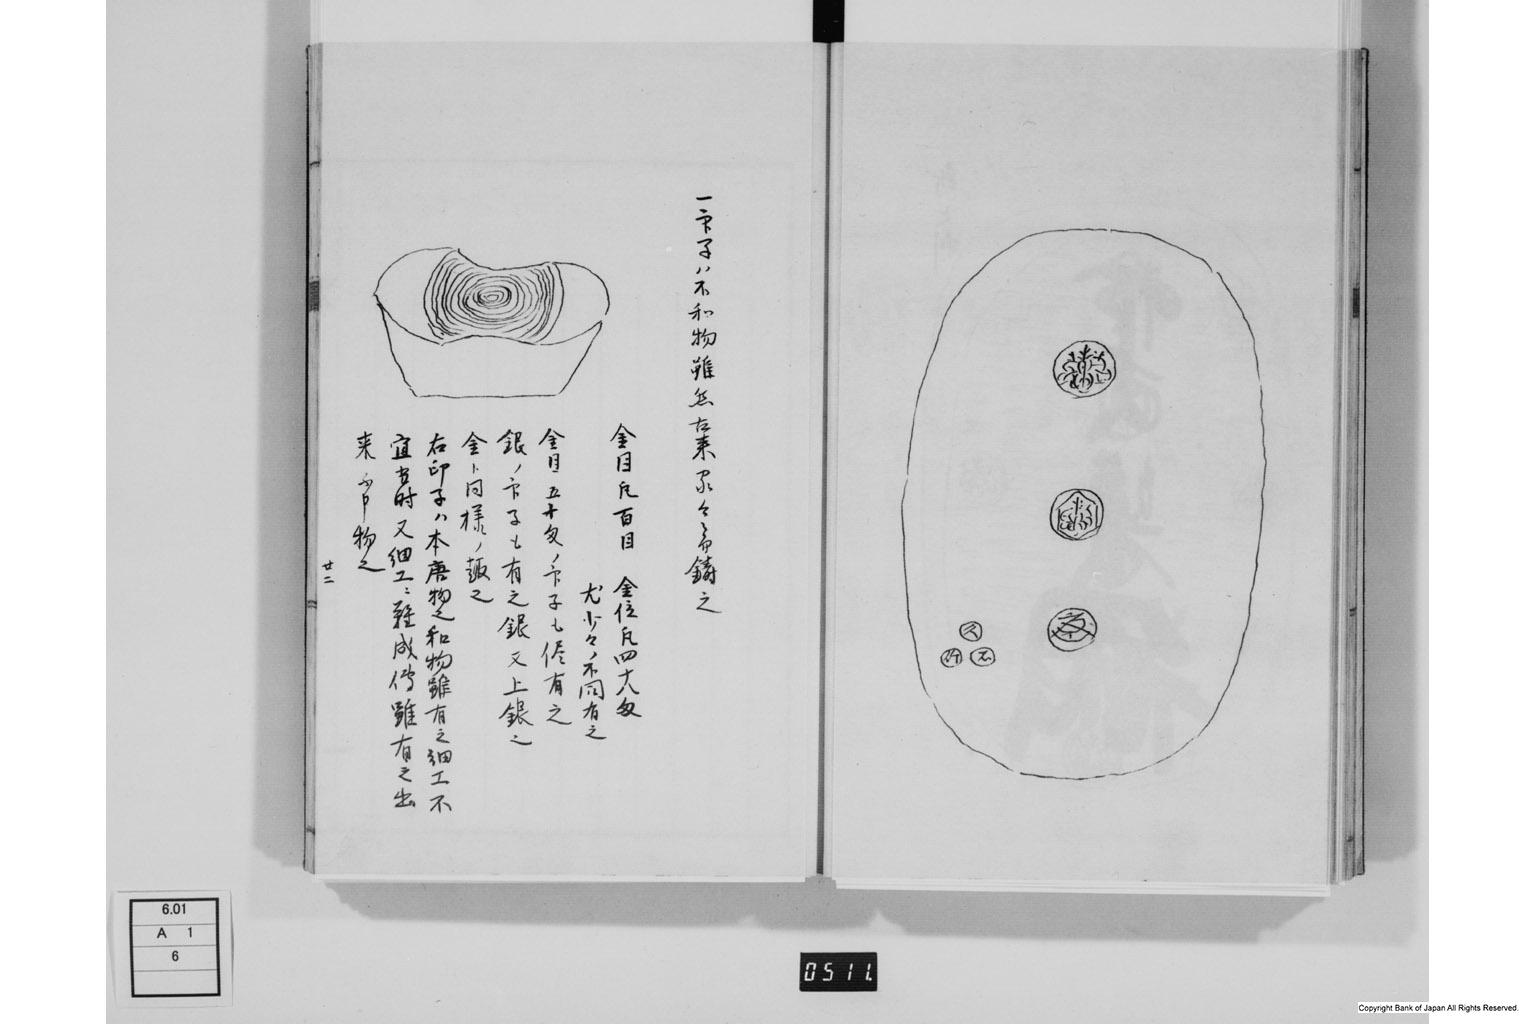 文
久
石
一印子ハ不和物雖然古来家々ニ而鋳之
金目凡百目 金位凡四十八匁
尤少々ノ不同有之
金目五十匁ノ印子も有之
銀ノ印子も有之銀又上銀之
金ト同様ノ趣之
右印子ハ本唐物之和物雖有之細工不
宜当時又細工ニ難成侍雖有之出
来 物之
廿二
6.01
A 1
6
0511
Copyright Bank of Japan All Rights Reserved.